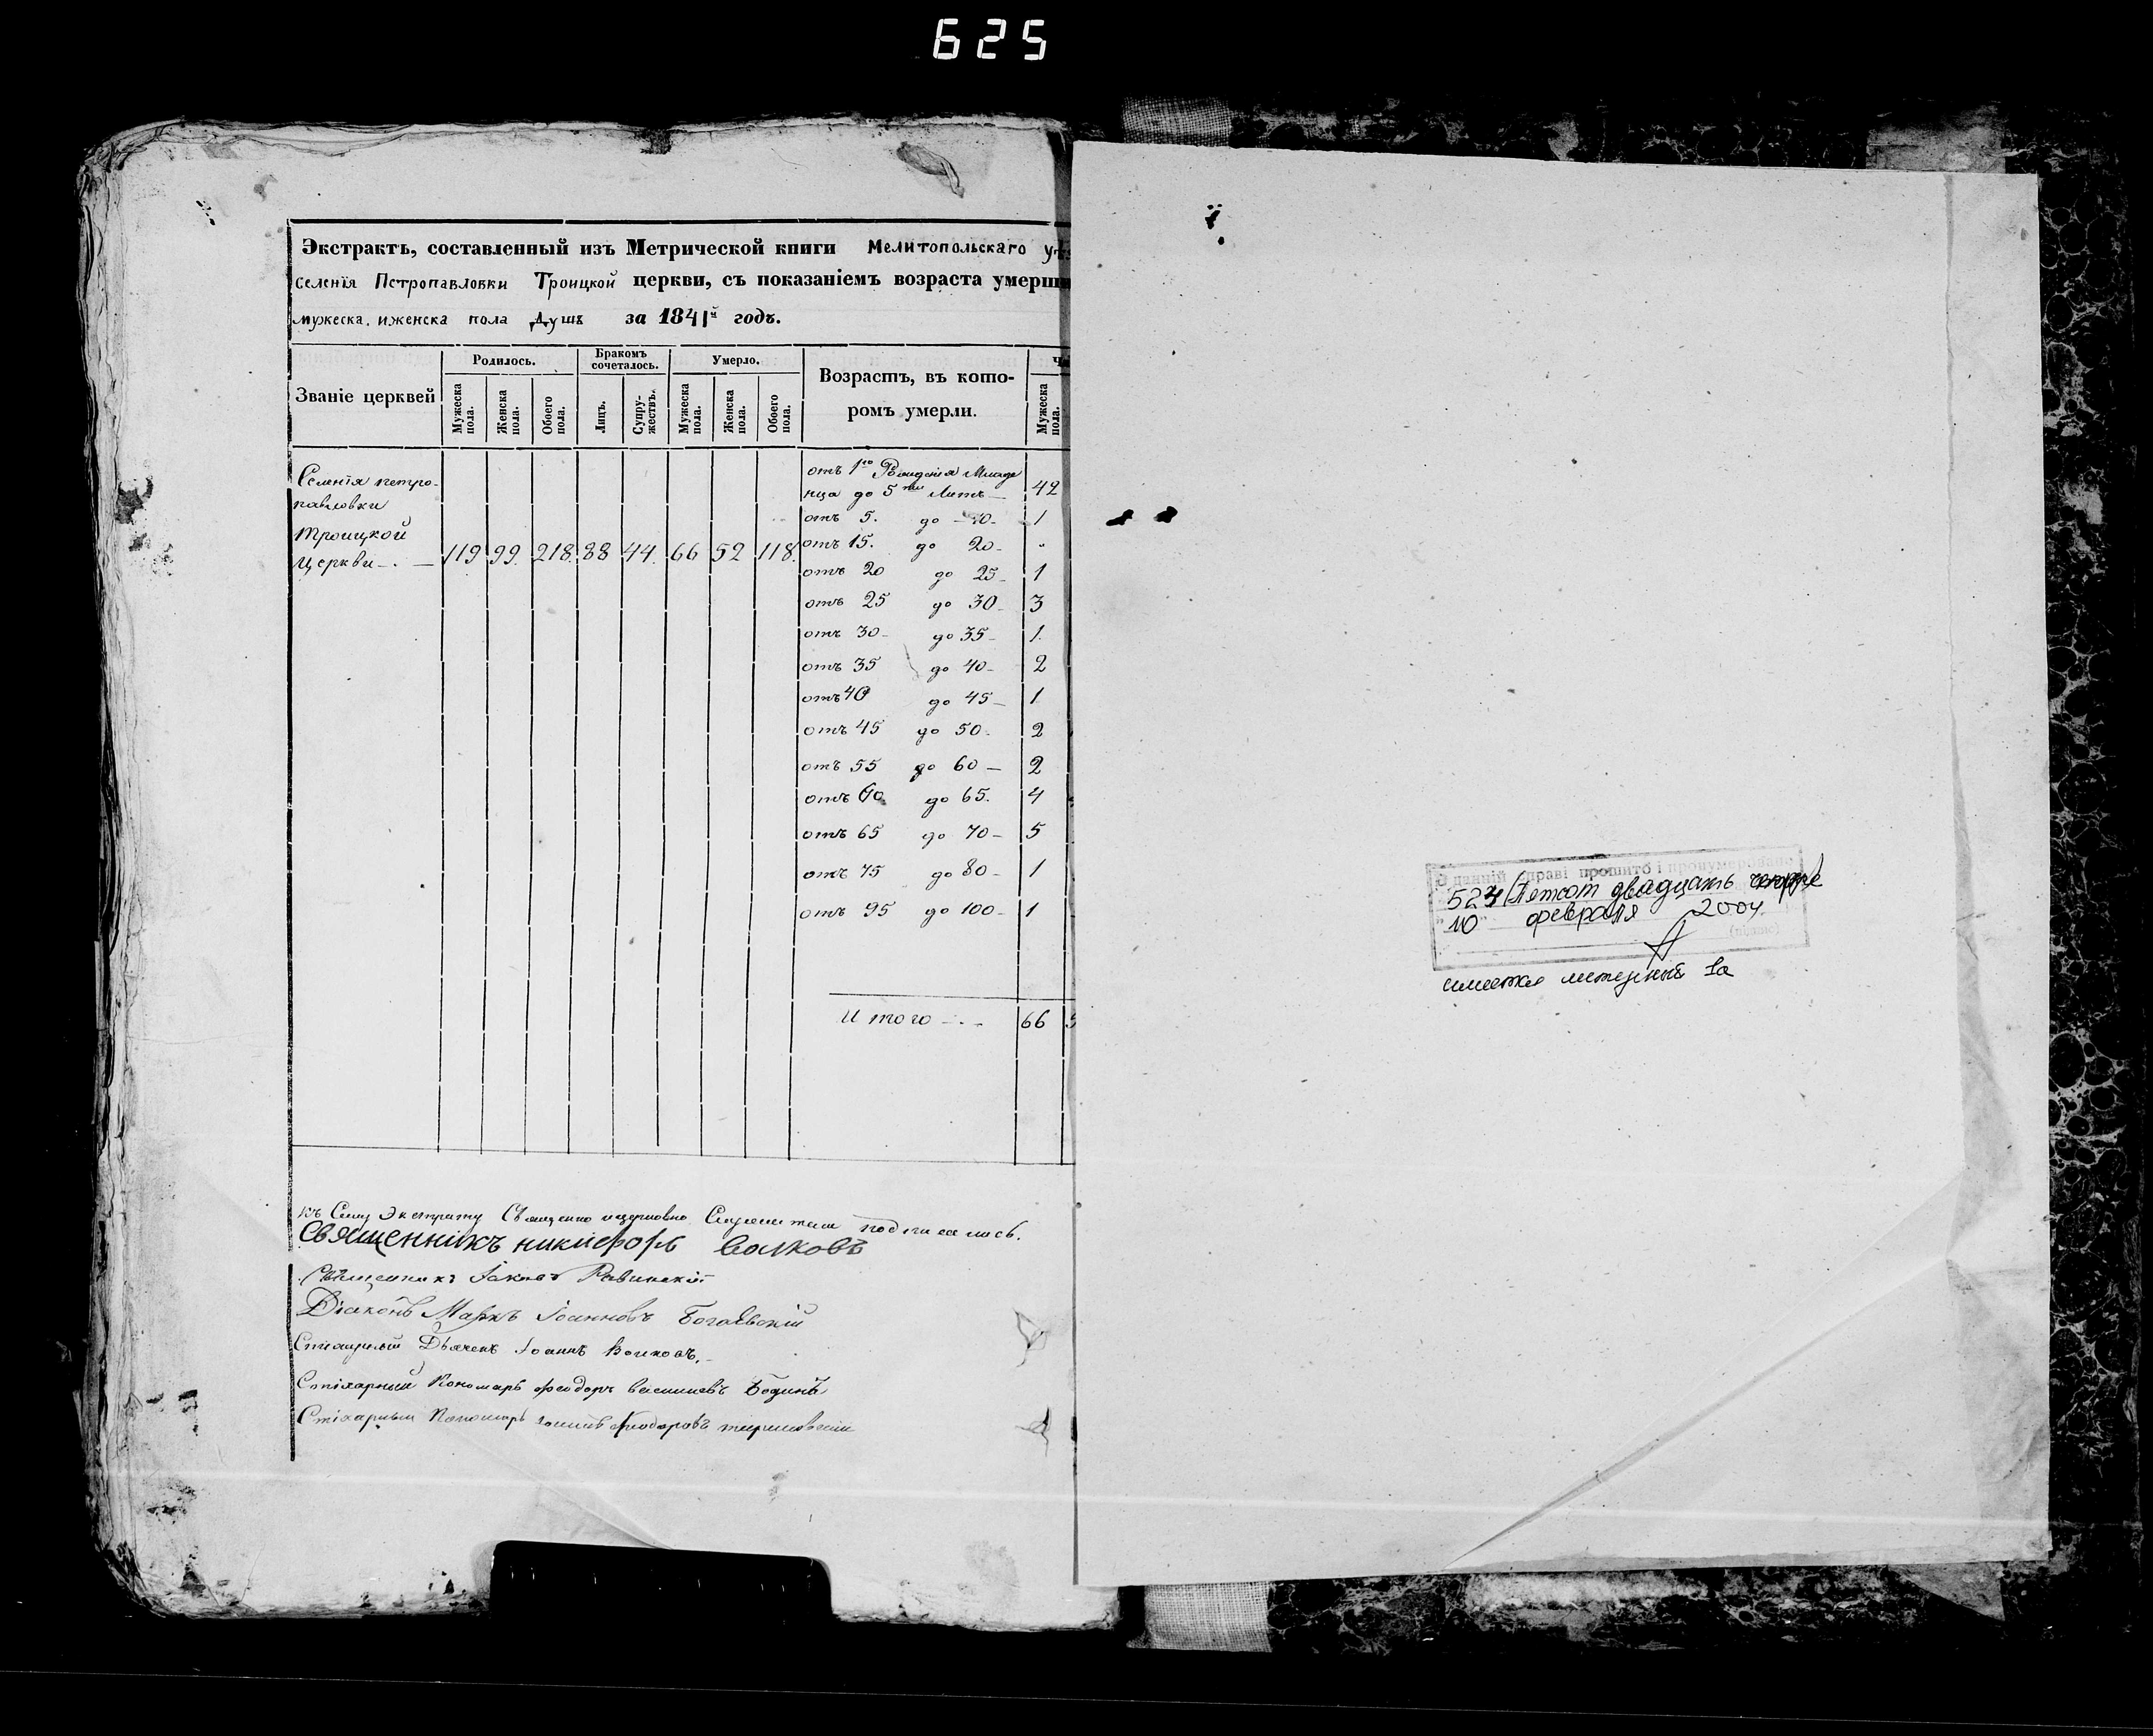 625
Экстрактъ, составленный изъ Метрической книги Мелитопольскаго уѣз
селенія Петропавловки Троицкой церкви, съ показаніемъ возраста умерши
мужеска. иженска пола душъ за 1841й годъ.
Званіе церквей
Родилось.
Бракомъ сочеталось.
Умерло.
Возрастъ, въ кото-
ромъ умерли.
Мужеска пола.
Женска пола.
Обоего пола.
Лицъ.
Супру-жествъ.
Мужеска пола.
Женска пола.
Обоего пола.
Мужеска пола.
Селенія петро-
павловки
Троицкой
Церкви 119 99. 218. 88 44. 66 52 118.
отъ 1го Рожденія Младе
нца до 5ти Лѣтъ — 42
отъ 5. до 10- 1
отъ 15. до 20- "
отъ 20 до 25- 1
отъ 25 до 30- 3
отъ 30- до 35- 1.
отъ 35 до 40- 2
отъ 40 до 45- 1
отъ 45 до 50- 2
отъ 55 до 60- 2
отъ 60 до 65. 4
отъ 65 до 70- 5
отъ 75 до 80- 1
отъ 95 до 100- 1
Итого 66
къ Сему Экстракту Священно ицерковно Служители подписались.
Священникъ никифоръ волковъ
Священникъ Іаковъ
Діаконъ Маркъ Іоанновъ Богаевскій
Стихарный Дьячекъ Іоаннъ Волковъ.
Стихарный Пономарь Феодоръ
Стихарный Пономарь Феодоровъ
У данній справі прошито і пронумеровано
524 (Пятсот двадцать четыре
"10" февраля 2004
(підпис)
имеется литерный 1а